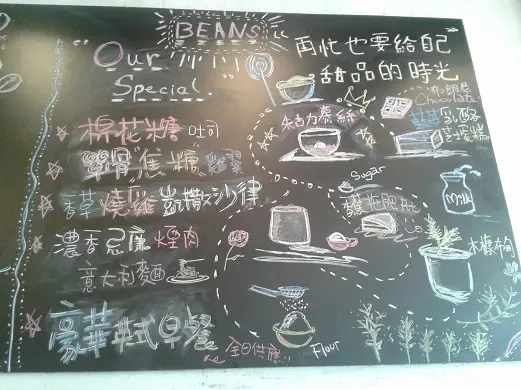 BEANS
"Our
Special"
再忙也要給自己
甜品的時光
棉花糖 吐司
焦糖
香草燒雞凱撒沙律
濃香忌廉煙肉
意大利麵
豪華英式早餐
全日供應
朱古力慕絲
布朗尼
Chocolate
藍莓乳酪
芝士蛋糕
Sugar
Milk
木糠布甸
Flour